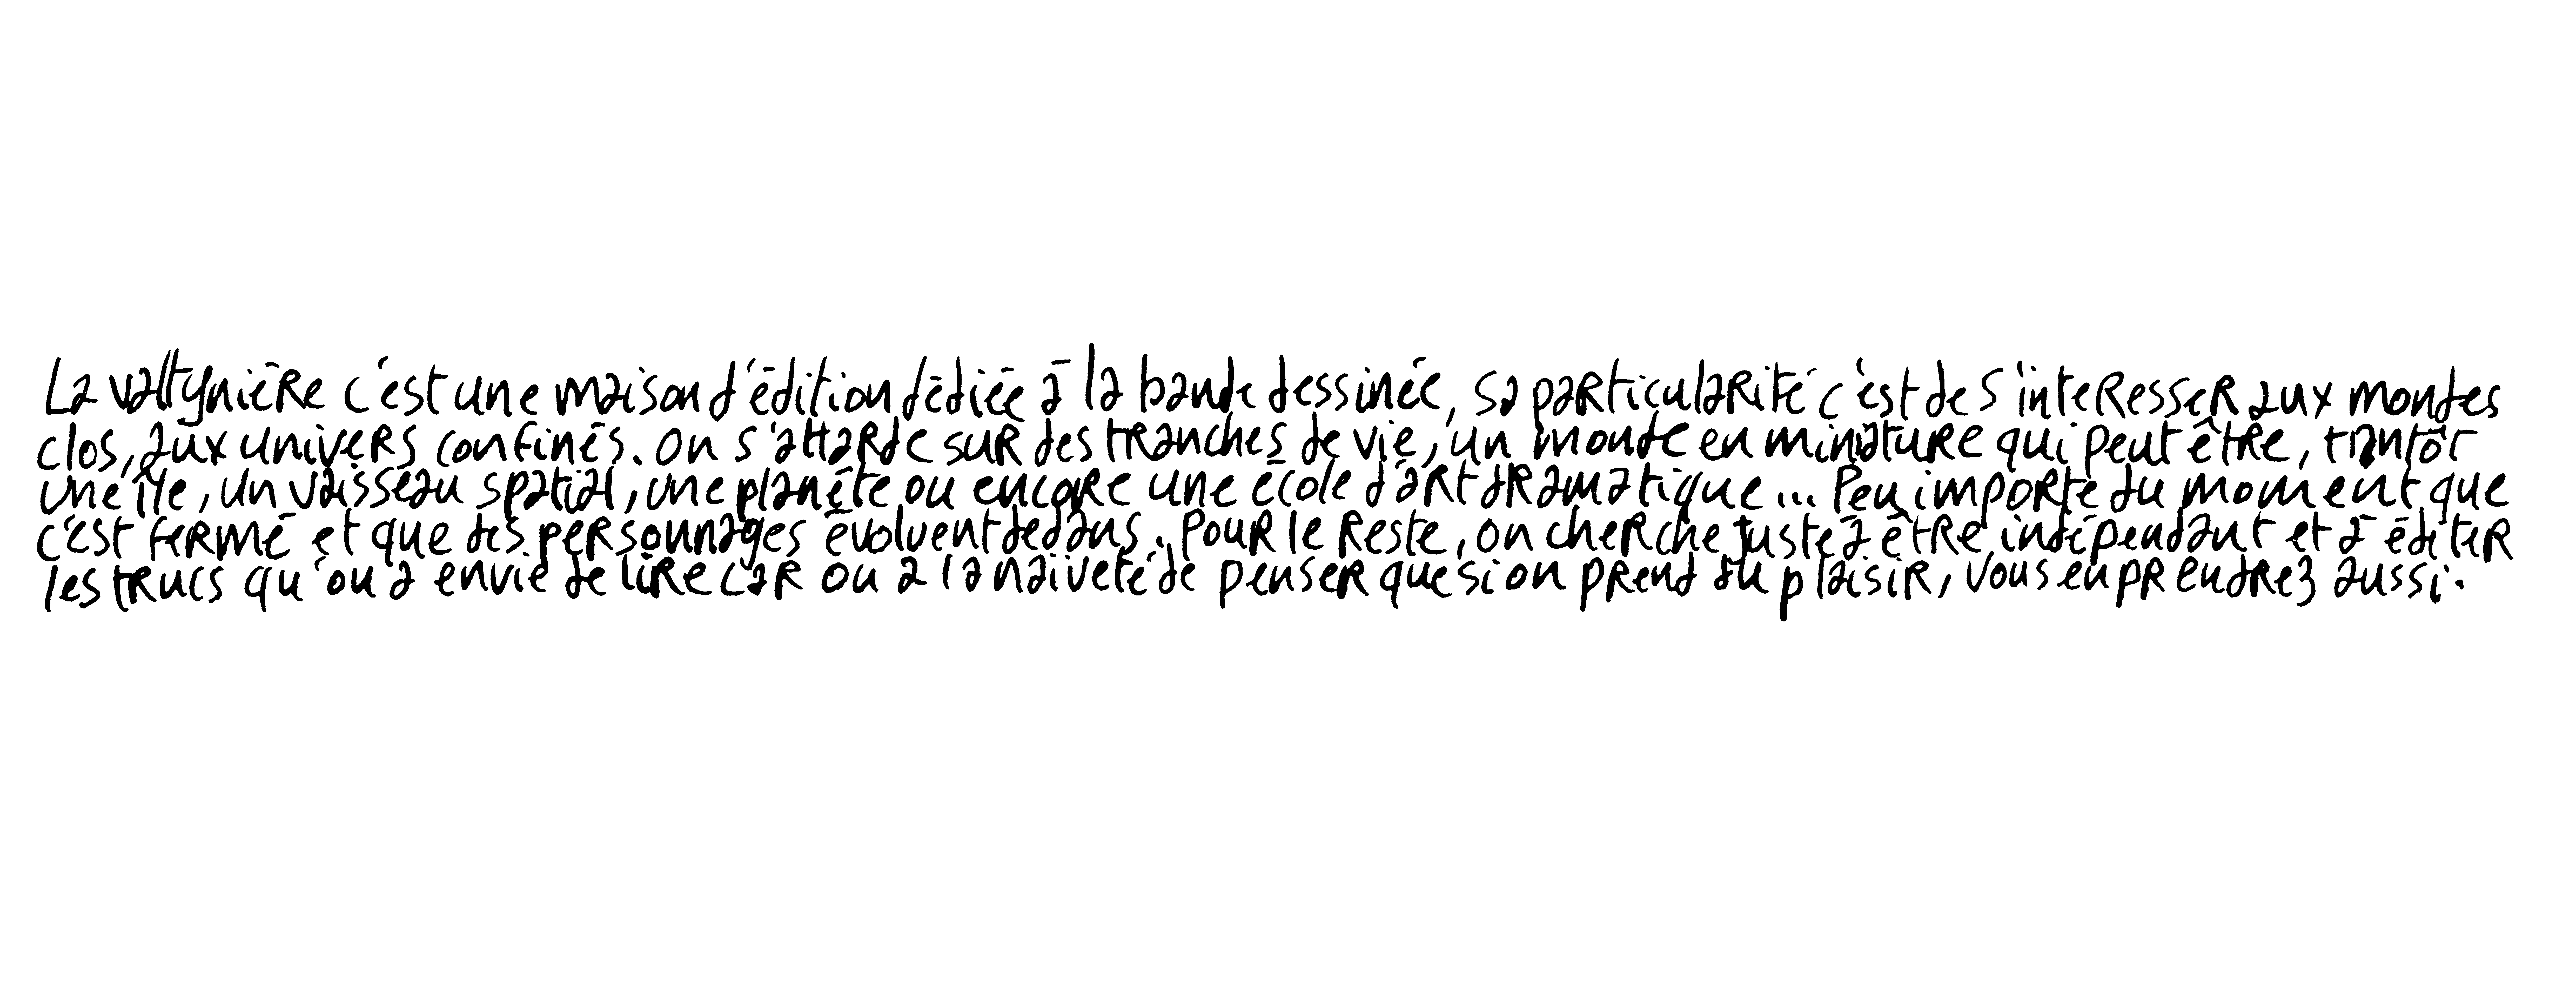 La valtynière c'est une maison d'édition dédiée à la bande dessinée, sa particularité c'est de s'interesser aux mondes
clos, aux univers confinés. On s'attarde sur des tranches de vie, un monde en miniature qui peut être, trantôt
une île, un vaisseau spatial, une planète ou encore une école d'art dramatique... Peu importe du moment que
c'est fermé et que des personnages évoluent dedans. Pour le reste, on cherche juste à être indépendant et à éditer
les trucs qu'on a envie de lire car on a la naiveté de penser que si on prend du plaisir, vous en prendrez aussi.